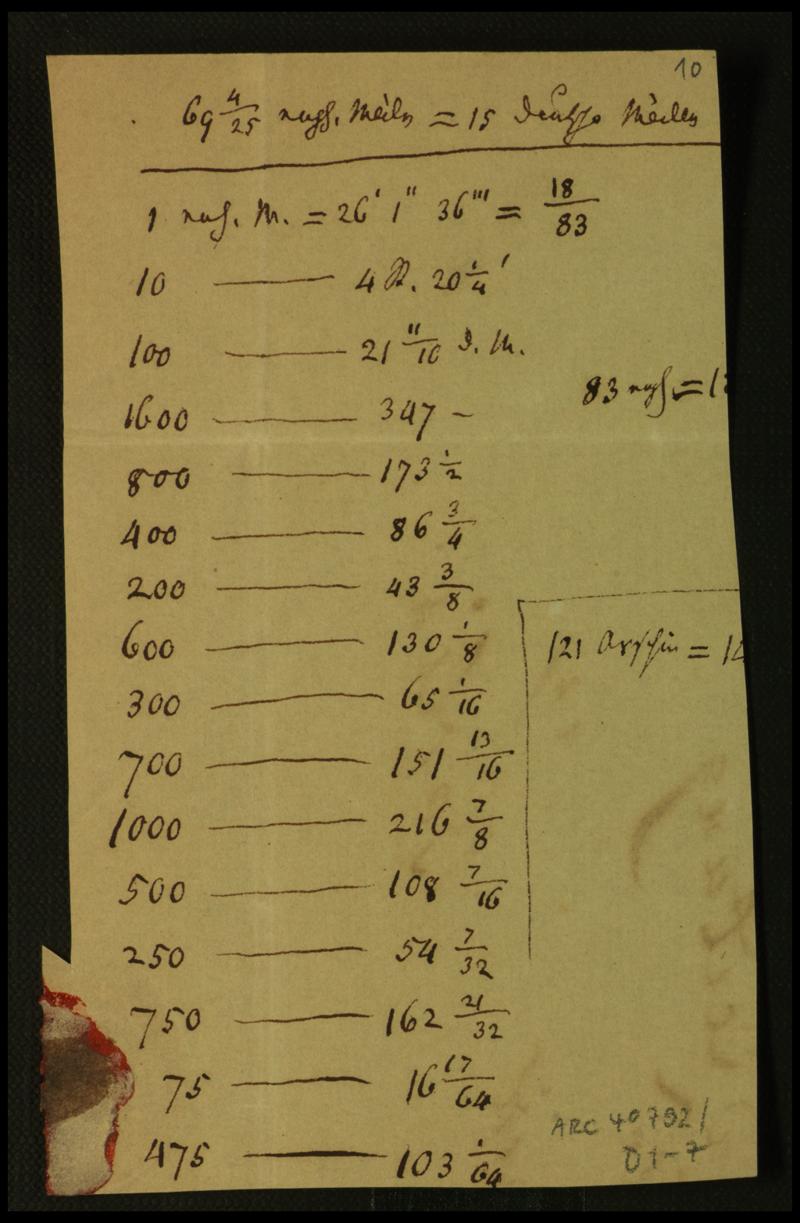 10
69 4/25 russ. Meiln = 15 deutsche Meilen
1 russ. M. = 26' 1'' 36''' = 18/83
10 —— 4 M. 20 1/4 '
100 —— 21 11/16 d. M.
83 russ. = 18
1600 —— 347 –
800 —— 173 1/2
400 —— 86 3/4
200 —— 43 3/8
600 —— 130 1/8
121 Arschin =
300 —— 65 1/16
700 —— 151 13/16
1000 —— 216 7/8
500 —— 108 7/16
250 —— 54 7/32
750 —— 162 21/32
75 —— 16 17/64
475 —— 103 1/64
ARC 4°792/
D1-7